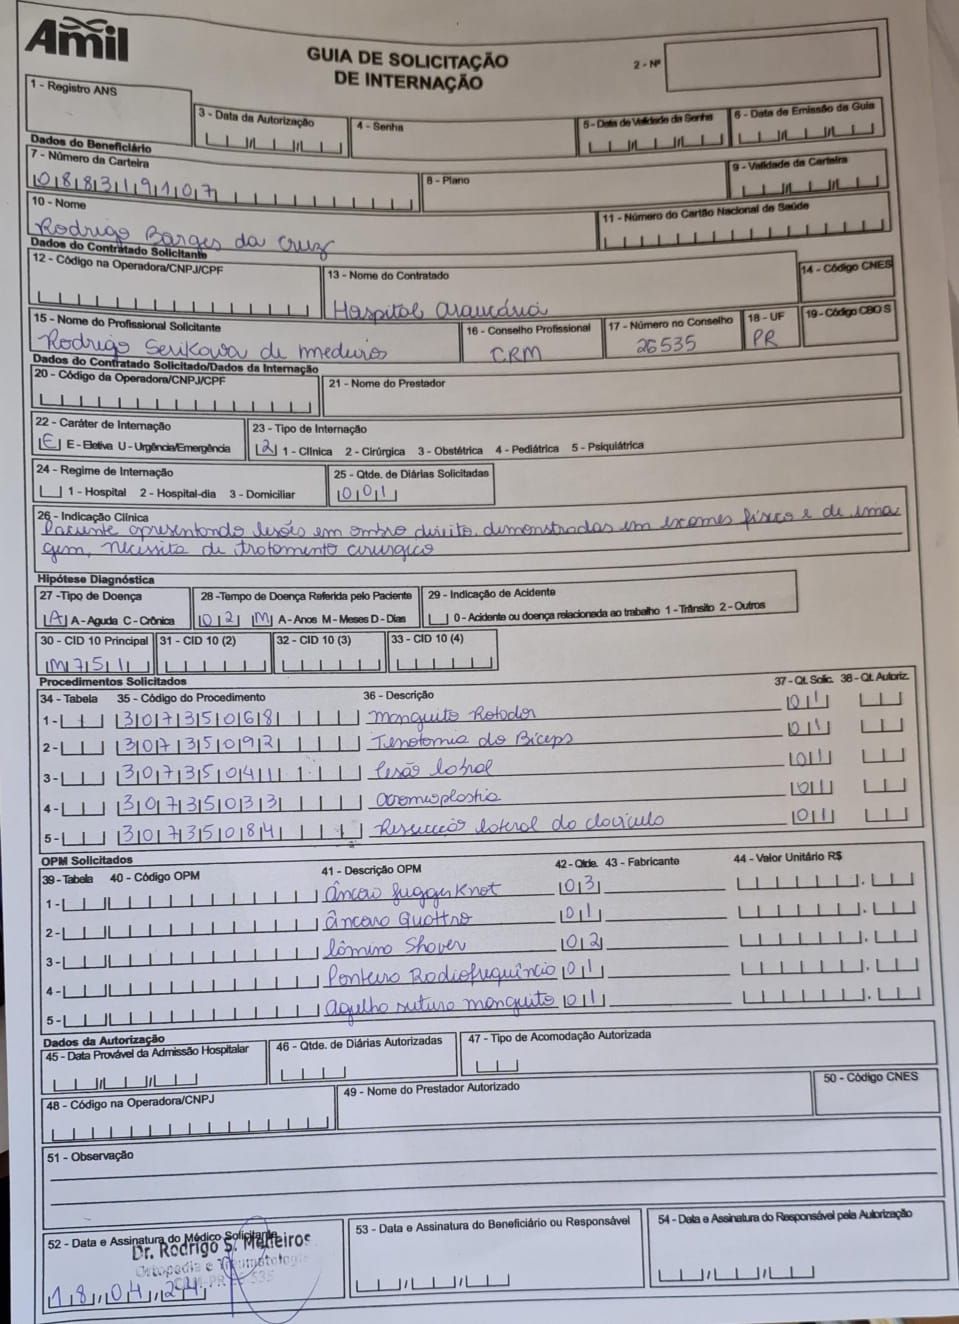 Amil
GUIA DE SOLICITAÇÃO
DE INTERNAÇÃO
2 - Nº
1 - Registro ANS
3 - Data da Autorização
4 - Senha
5 - Data de Validade da Senha
6 - Data de Emissão da Guia
Dados do Beneficiário
7 - Número da Carteira
088319107
8 - Plano
9 - Validade da Carteira
10 - Nome
Rodrigo Barges da Cruz
11 - Número do Cartão Nacional de Saúde
Dados do Contratado Solicitante
12 - Código na Operadora/CNPJ/CPF
13 - Nome do Contratado
Hospital Araucária
14 - Código CNES
15 - Nome do Profissional Solicitante
Rodrigo Serikawa de medeiros
16 - Conselho Profissional
CRM
17 - Número no Conselho
26535
18 - UF
PR
19 - Código CBO S
Dados do Contratado Solicitado/Dados da Internação
20 - Código da Operadora/CNPJ/CPF
21 - Nome do Prestador
22 - Caráter de Internação
E E - Eletiva U - Urgência/Emergência
23 - Tipo de Internação
2 1 - Clínica 2 - Cirúrgica 3 - Obstétrica 4 - Pediátrica 5 - Psiquiátrica
24 - Regime de Internação
1 - Hospital 2 - Hospital-dia 3 - Domiciliar
25 - Qtde. de Diárias Solicitadas
001
26 - Indicação Clínica
Paciente apresentando lesões em ombro direito, demonstradas em exames físico e de ima
gem, necessita de tratamento cirurgico
Hipótese Diagnóstica
27 - Tipo de Doença
A A - Aguda C - Crônica
28 - Tempo de Doença Referida pelo Paciente
02 M A - Anos M - Meses D - Dias
29 - Indicação de Acidente
0 - Acidente ou doença relacionada ao trabalho 1 - Trânsito 2 - Outros
30 - CID 10 Principal
M751
31 - CID 10 (2)
32 - CID 10 (3)
33 - CID 10 (4)
Procedimentos Solicitados
34 - Tabela 35 - Código do Procedimento 36 - Descrição 37 - Qt. Solic. 38 - Qt. Autoriz.
1 - 30735068 manguito Rotador 01
2 - 30735092 Tenotomia do Biceps 01
3 - 30735041 lesão labral 01
4 - 30735033 acromioplastia 01
5 - 30735084 Ressecção lateral da clavicula 01
OPM Solicitados
39 - Tabela 40 - Código OPM 41 - Descrição OPM 42 - Qtde. 43 - Fabricante 44 - Valor Unitário R$
1 - âncora JuggerKnot 03
2 - âncora Quattro 01
3 - lâmina Shaver 02
4 - Ponteira Radiofrequência 01
5 - agulha sutura manguito 01
Dados da Autorização
45 - Data Provável da Admissão Hospitalar
46 - Qtde. de Diárias Autorizadas
47 - Tipo de Acomodação Autorizada
48 - Código na Operadora/CNPJ
49 - Nome do Prestador Autorizado
50 - Código CNES
51 - Observação
52 - Data e Assinatura do Médico Solicitante
Dr. Rodrigo S. Medeiros
Ortopedia e Traumatologia
CRM-PR 26535
18 04 24
53 - Data e Assinatura do Beneficiário ou Responsável
54 - Data e Assinatura do Responsável pela Autorização